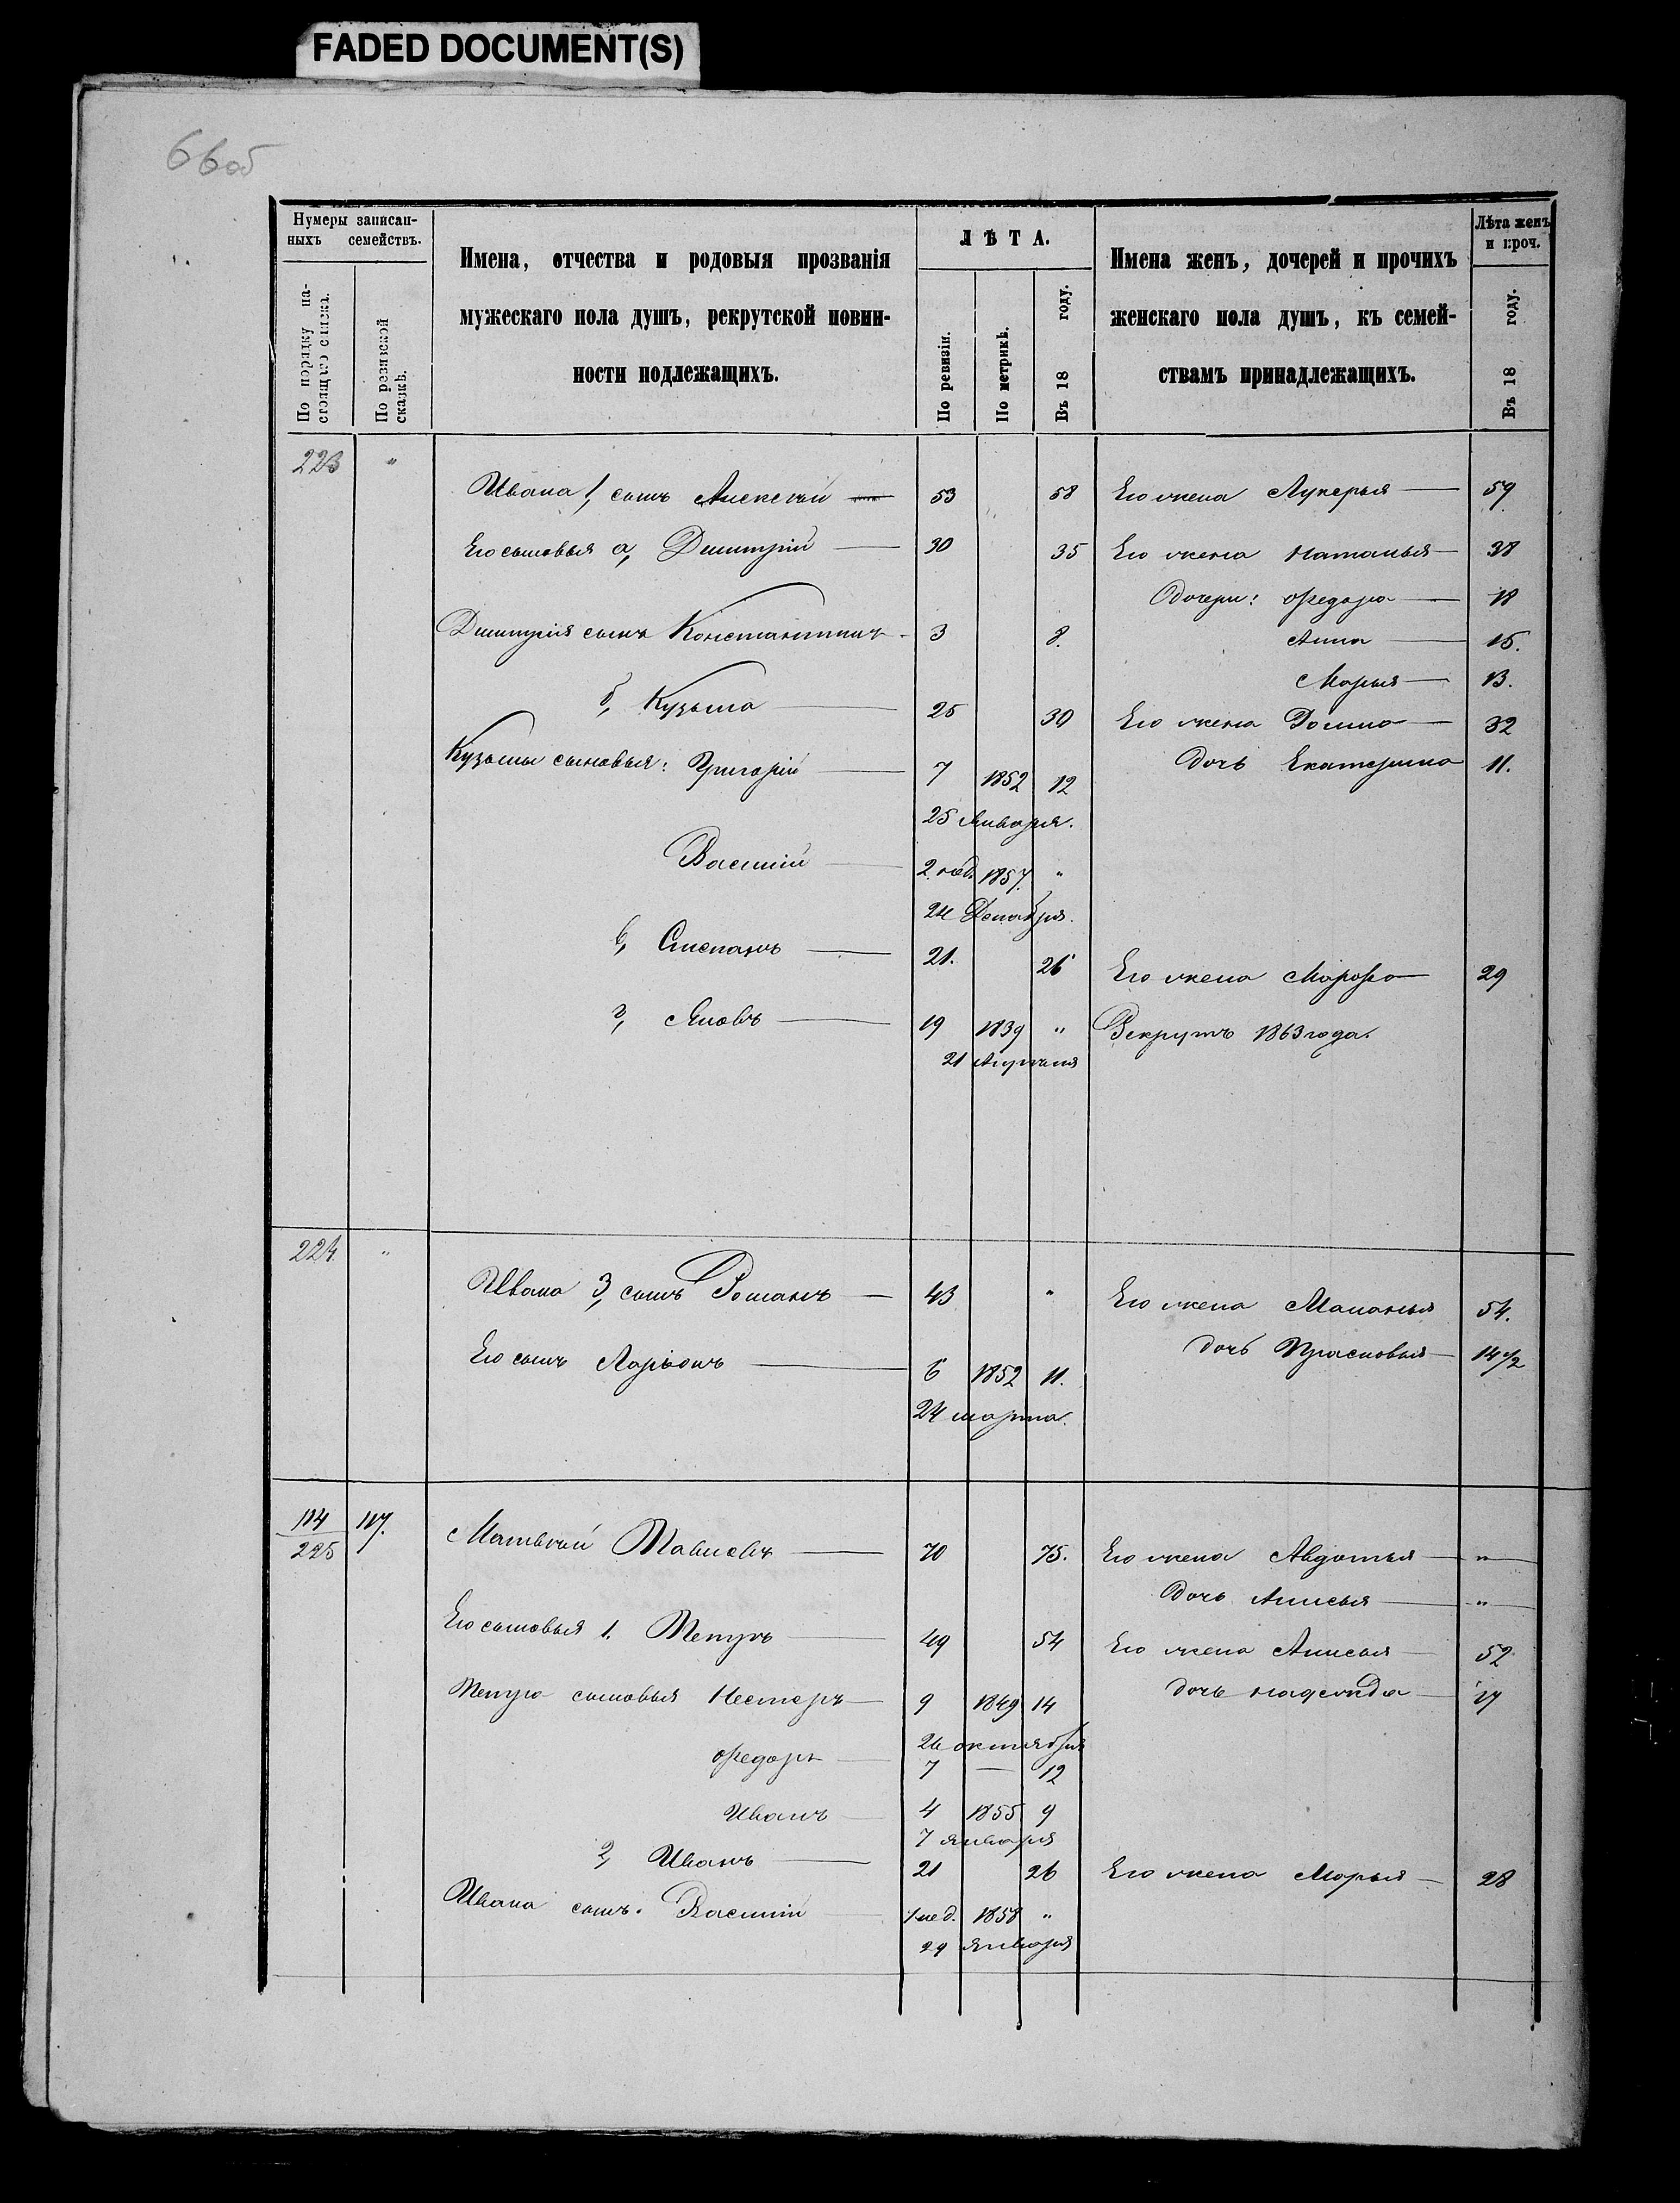 FADED DOCUMENT(S)
66об
Нумеры записан-
ныхъ семействъ.
По порядку на-
стоящаго списка.
По ревизской
сказкѣ.
Имена, отчества и родовыя прозванія
мужескаго пола душъ, рекрутской повин-
ности подлежащихъ.
ЛѢТА.
По ревизіи.
По метрикѣ.
Въ 18 году.
Имена женъ, дочерей и прочихъ
женскаго пола душъ, къ семей-
ствамъ принадлежащихъ.
Лѣта женъ
и проч.
Въ 18 году.
223 "
Ивана 1, сынъ Алексѣй 53 58 Его жена Лукерья 59
Его сыновья а, Дмитрій 30 35 Его жена Наталья 38
Дочери: Ѳедора 18
Дмитрія сынъ Константинъ 3 8. Анна 15.
Марья 13.
б, Кузьма 25 30 Его жена Домна 32
Кузьмы сыновья: Григорій 7 1852 12 Дочь Екатерина 11.
25 Января.
Василій 2 нед. 1857. "
24 Декабря.
в, Степанъ 21. 26 Его жена Марфа 29
г, Яковъ 19 1839 " Рекрутъ 1863 года.
21 Апрѣля
224. "
Ивана 3, сынъ Романъ 43 " Его жена Маланья 54.
Дочь Прасковья 14 1/2
Его сынъ Ларіонъ 6 1852 11.
24 марта.
114 117.
225
Матвѣй Павловъ 70 75. Его жена Авдотья "
Дочь Анисья "
Его сыновья 1. Петръ 49 54 Его жена Анисья 52
Петра сыновья Нестеръ 9 1849 14 Дочь Надежда 17
26 октября
Ѳедоръ 7 — 12
Иванъ 4 1855 9
7 января
2, Иванъ 21 26 Его жена Марья 28
Ивана сынъ. Василій 1 нед. 1858 "
29 января